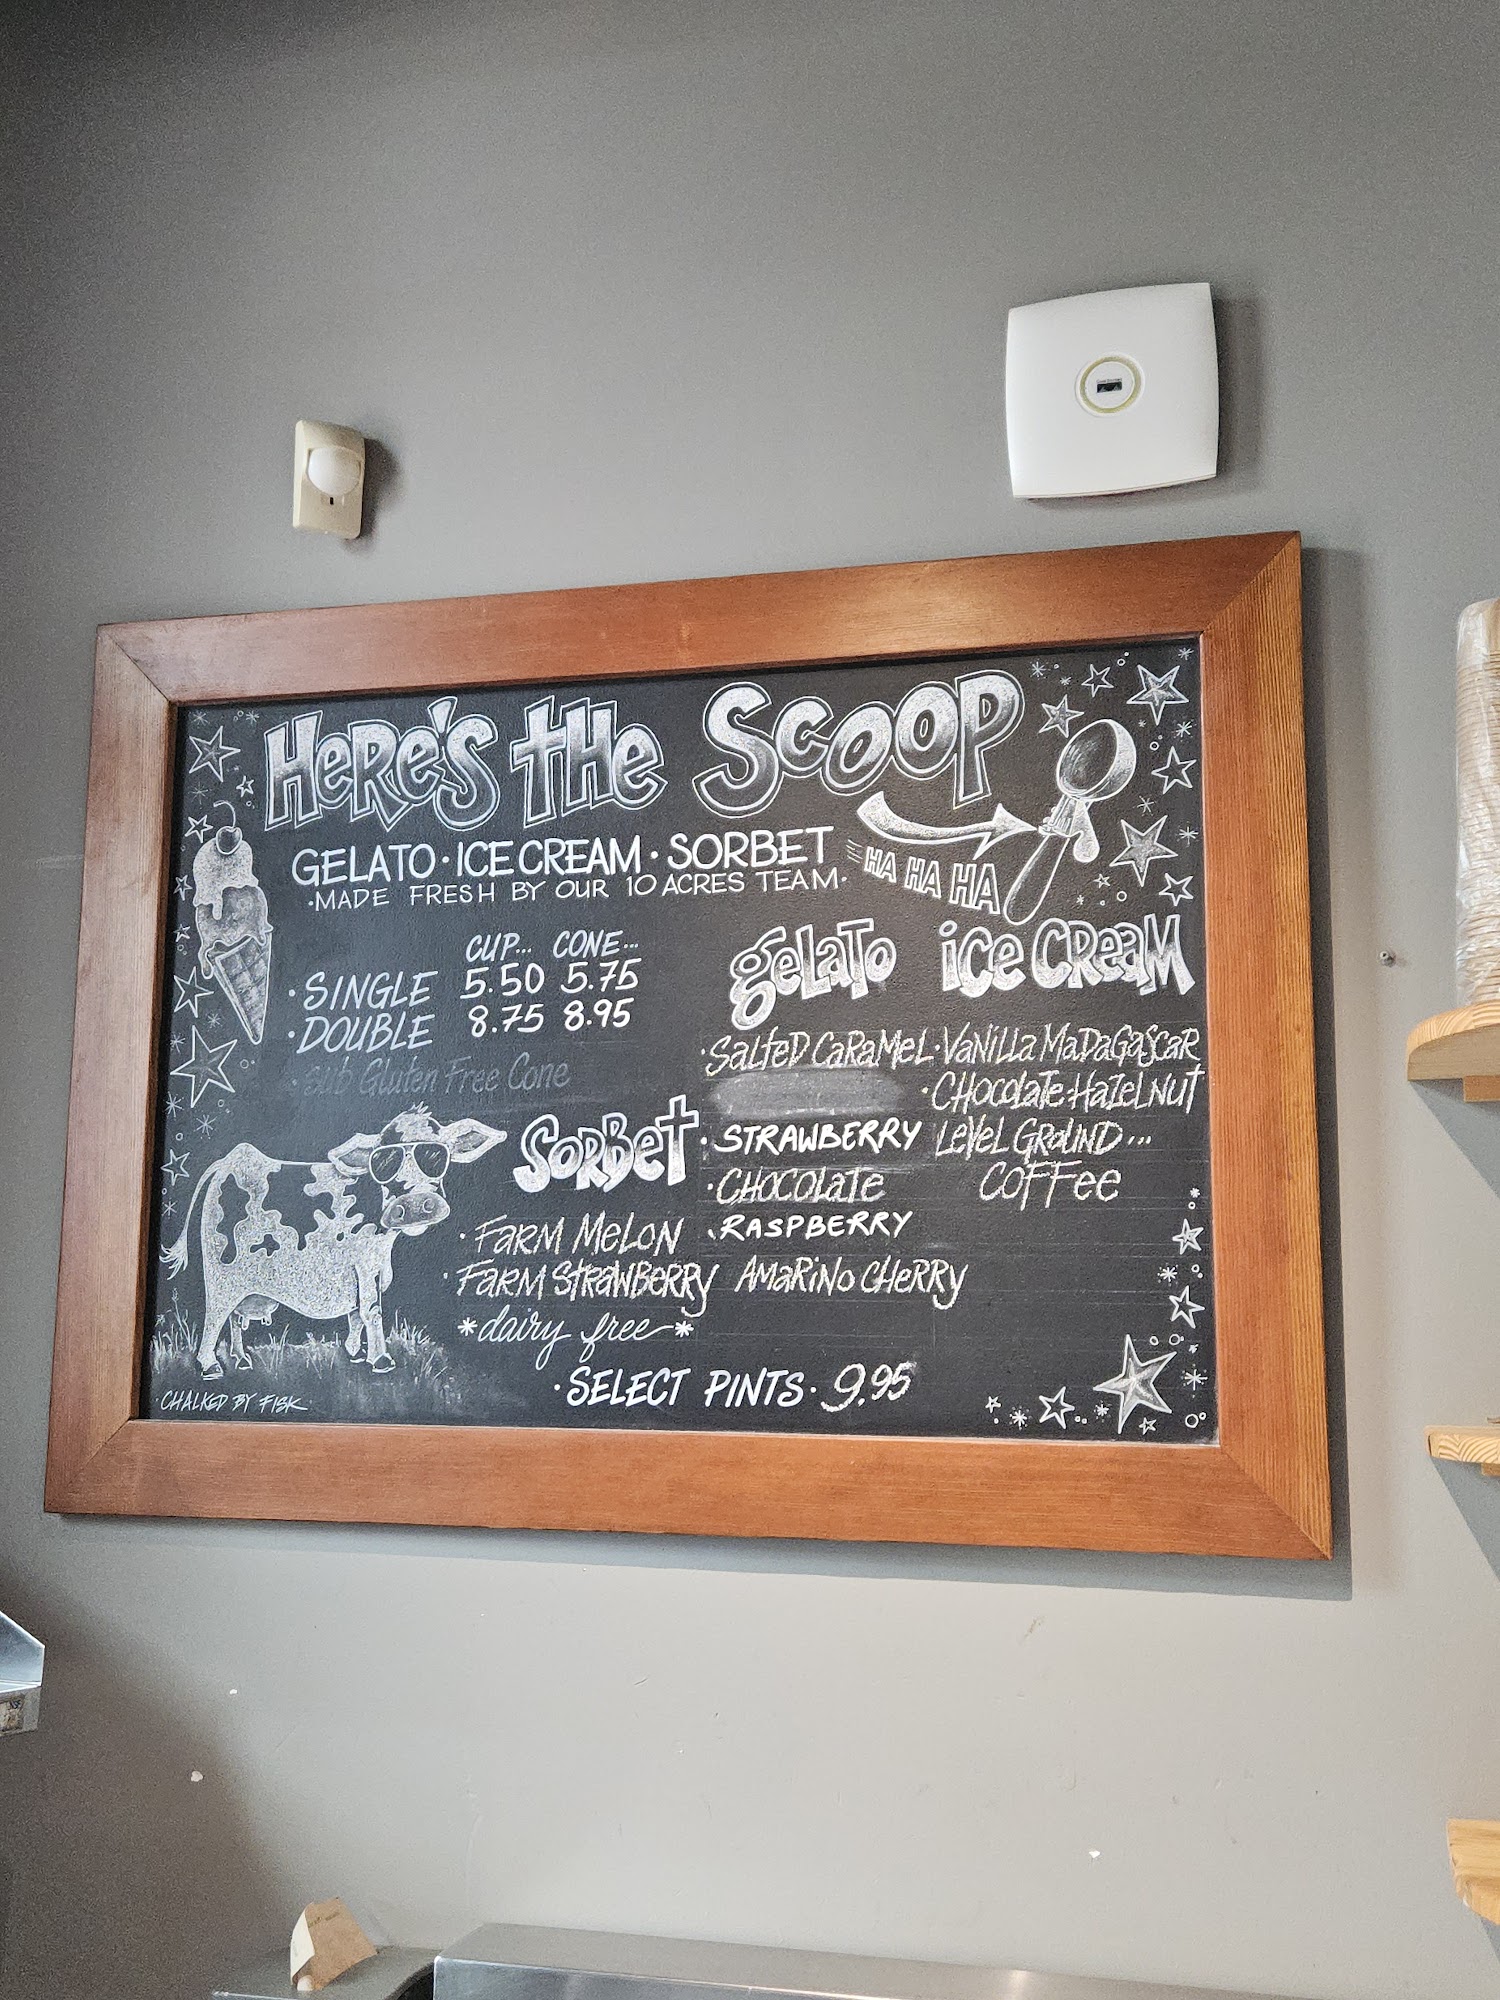 HERE'S THE SCOOP
GELATO · ICE CREAM · SORBET
·MADE FRESH BY OUR 10 ACRES TEAM·
HA HA HA
CUP... CONE...
·SINGLE 5.50 5.75
·DOUBLE 8.75 8.95
· sub Gluten Free Cone
SORBET
·FARM MELON
·FARM STRAWBERRY
*dairy free*
gelato
·SALTED CARAMEL
·STRAWBERRY
·CHOCOLATE
·RASPBERRY
AMARINO CHERRY
ice CREAM
·VANILLA MADAGASCAR
·CHOCOLATE HAZELNUT
LEVEL GROUND...
COFFEE
·SELECT PINTS· 9.95
·CHALKED BY FISK·